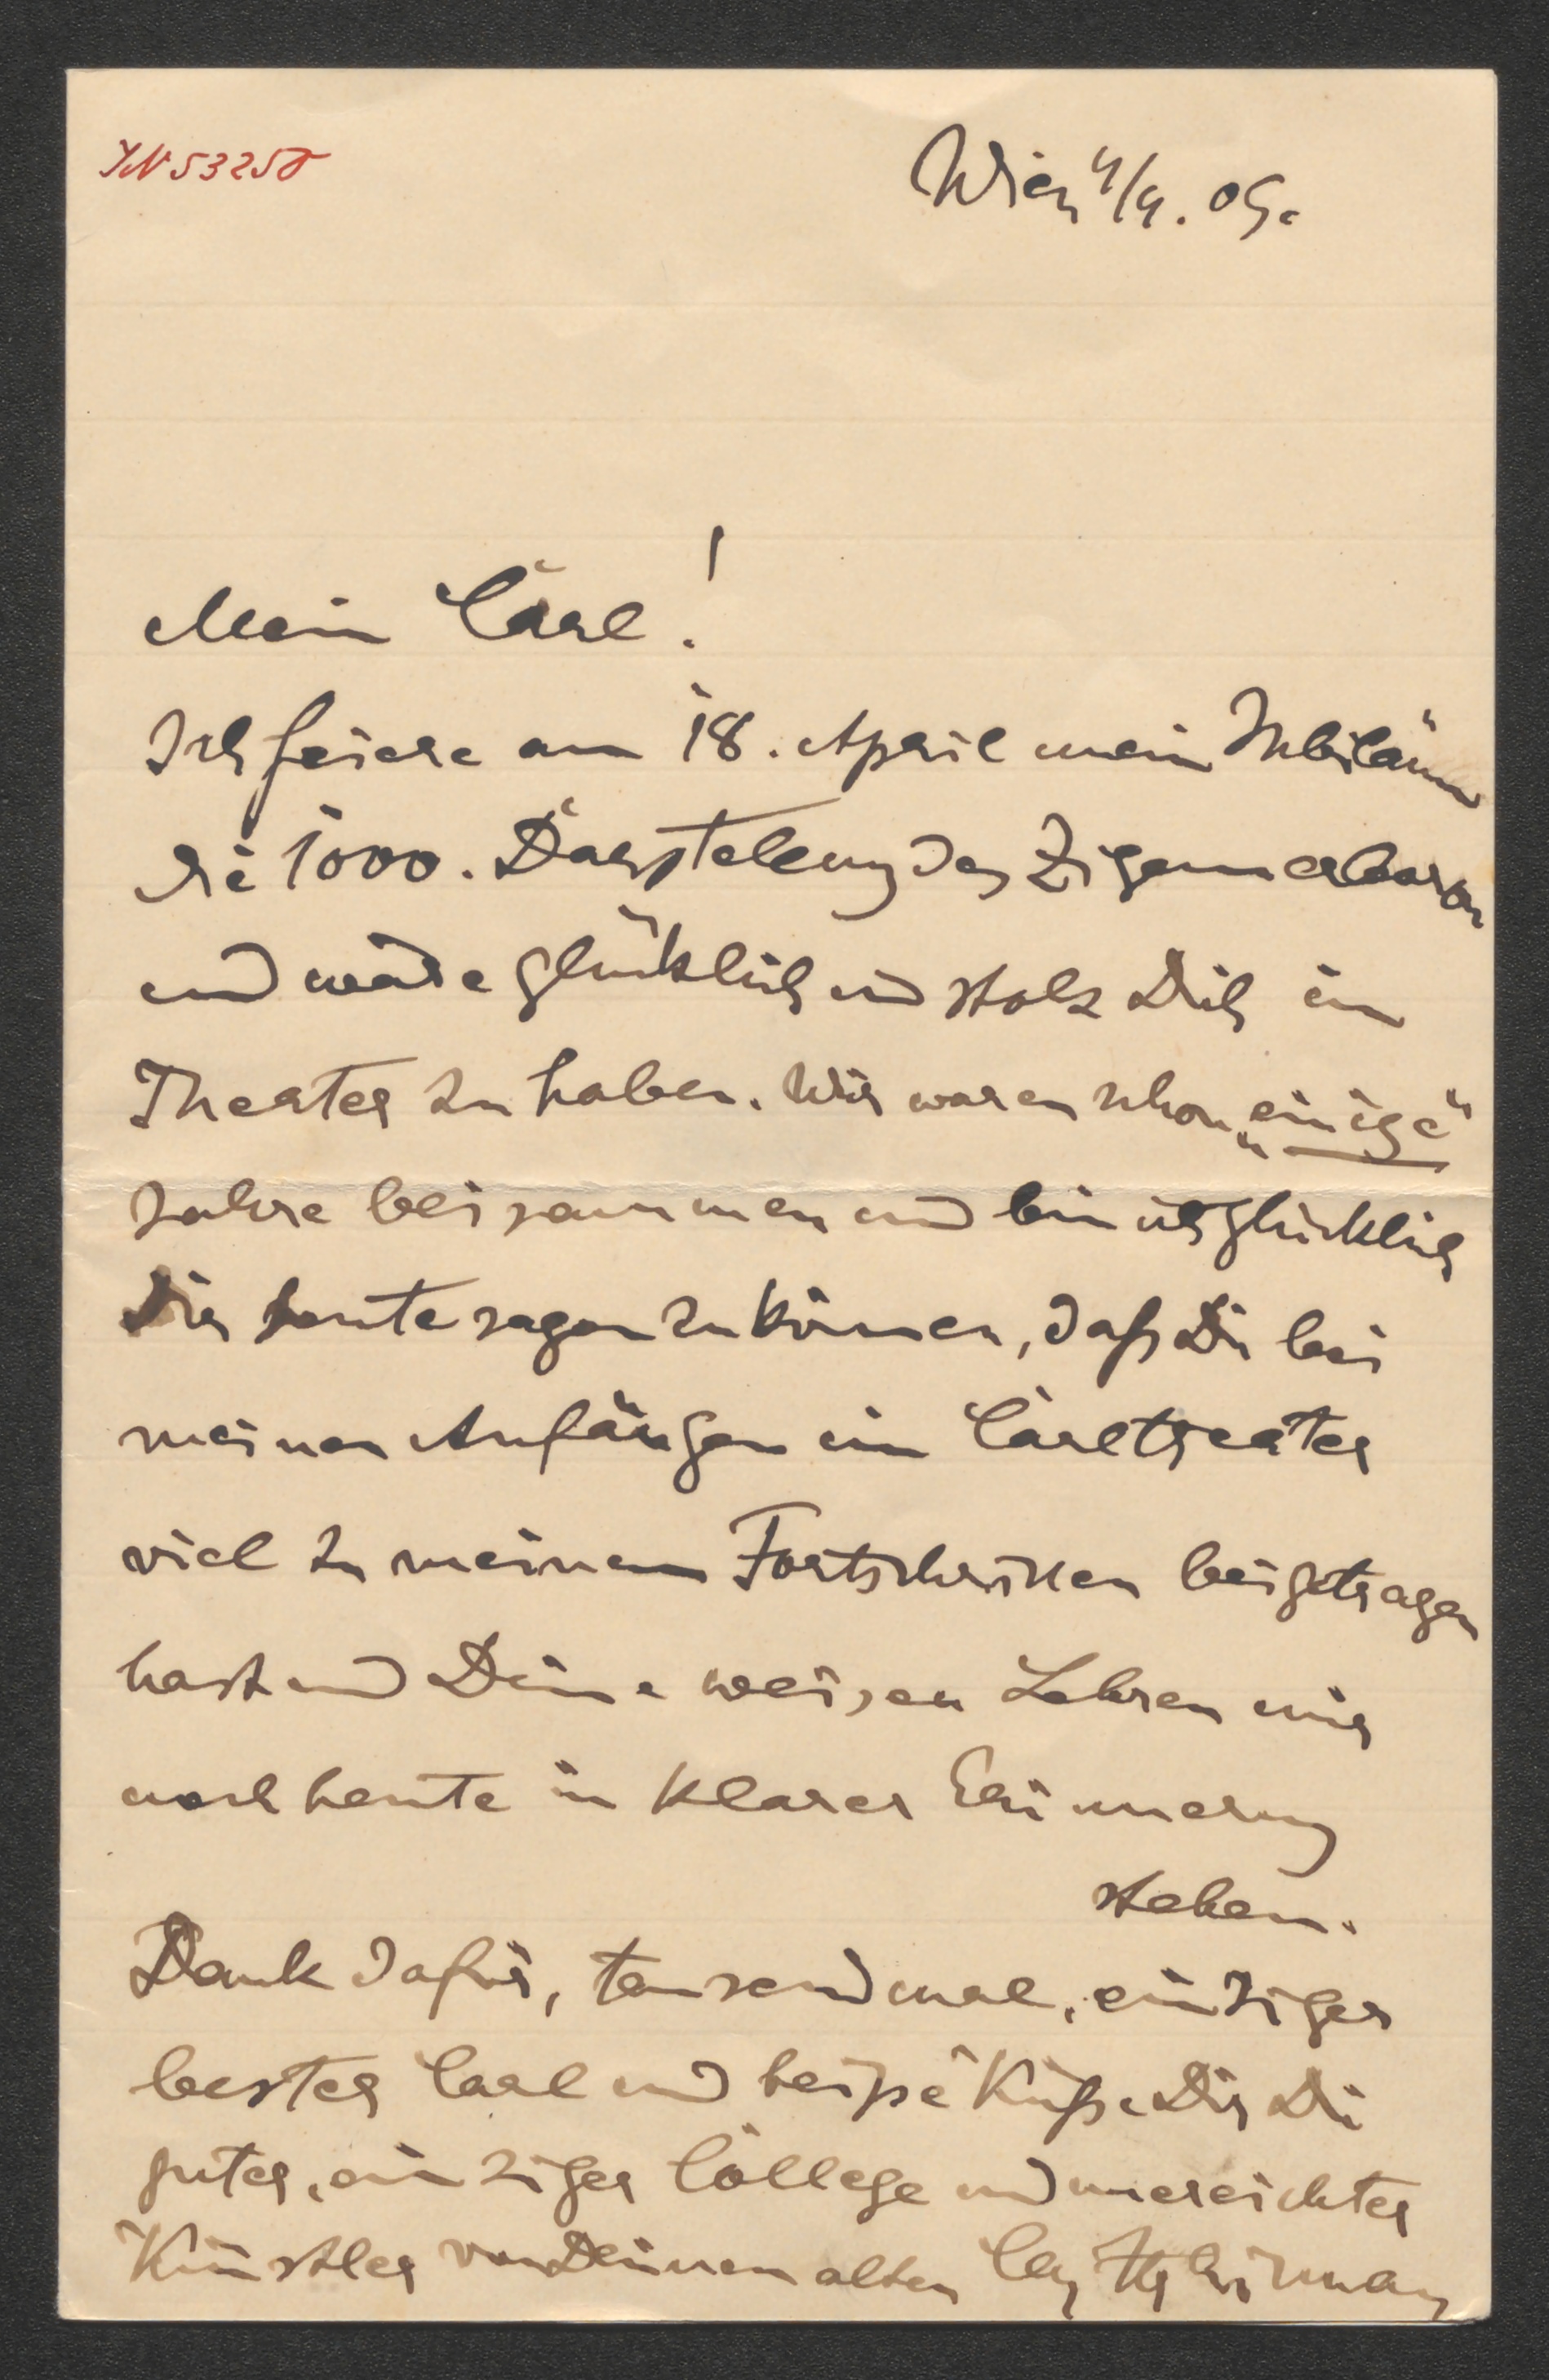 JN 53258
Wien 4/4. 09.
Mein Carl!
Ich feiere am 18. April mein Jubiläum
die 1000. Darstellung des Zigeunerbaron
und wäre glücklich und stolz Dich im
Theater zu haben. Wir waren schon „einige“
Jahre beisammen und bin ich glücklich
Dir heute sagen zu können, daß Du bei
meinen Anfängen im Carltheater
viel zu meinem Fortschritten beigetragen
hast und Deine weisen Lehren mir
noch heute in klarer Erinnerung
stehen.
Dank dafür, tausendmal, einziger
bester Carl und heiße Küße Dir Du
guter, einziger College und unereichter
Künstler von Deinem alten